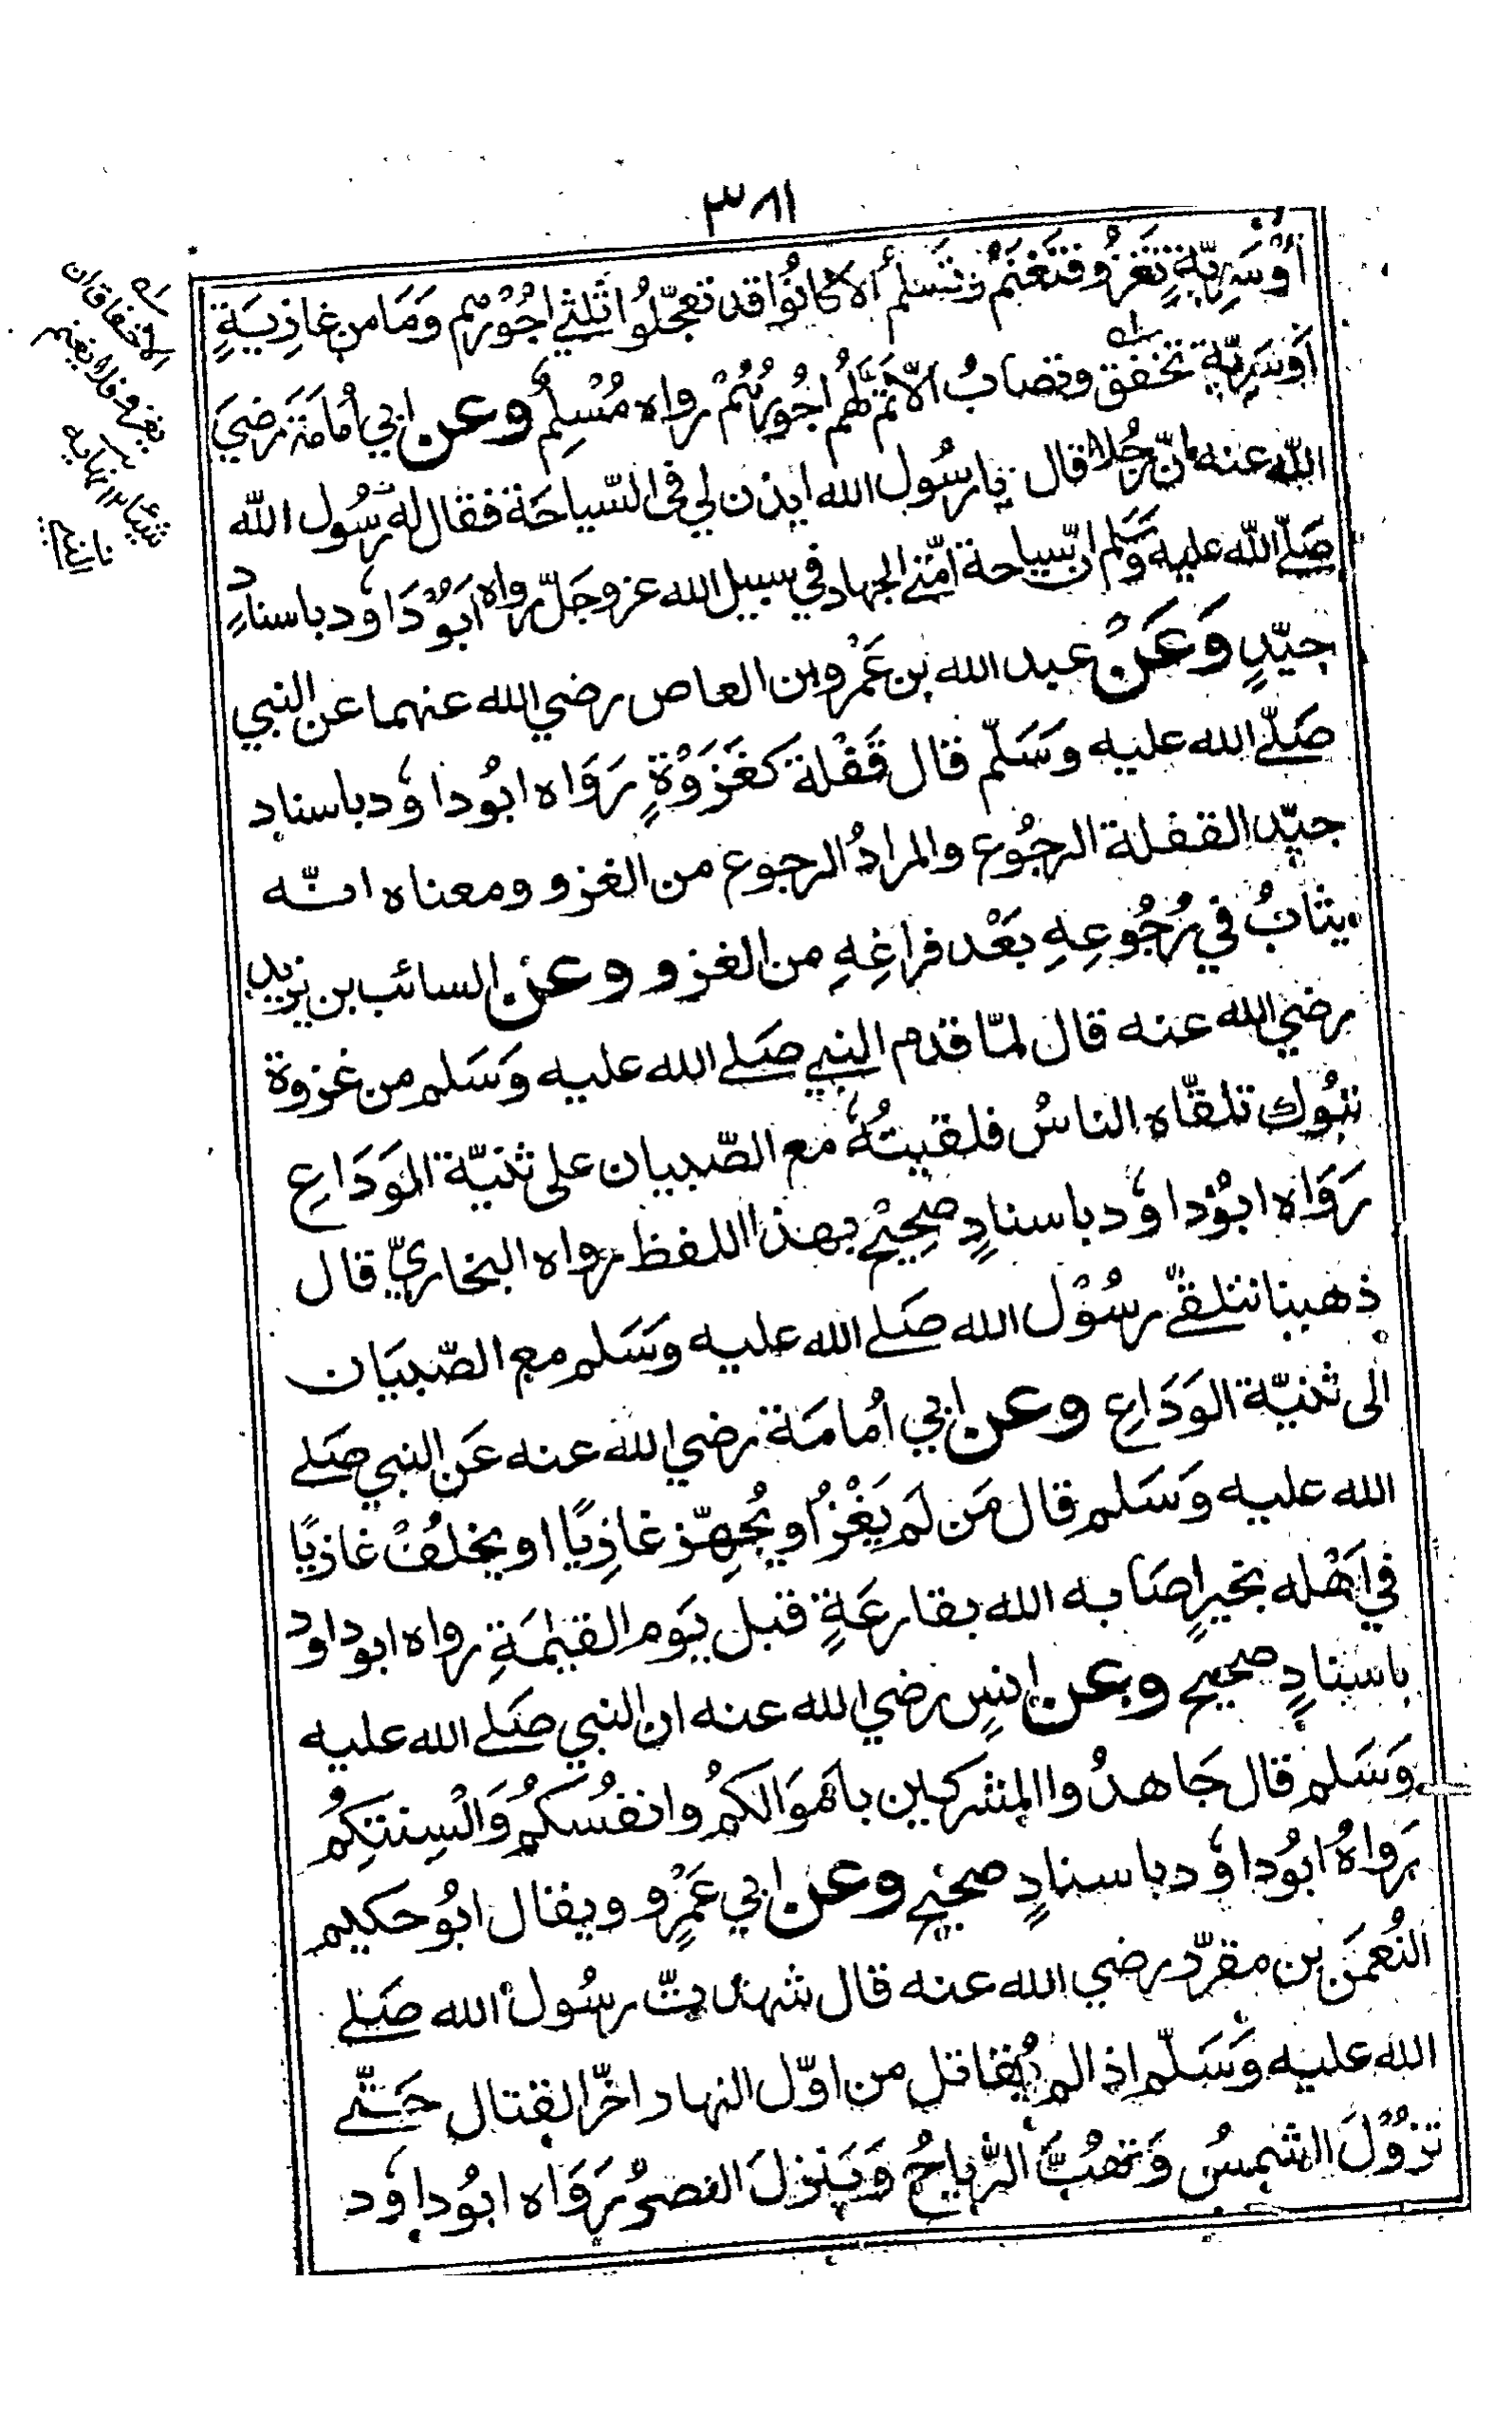 ٣٨١
اَوْسَرِيَّةٍ تَغزُو فتَغنَمُ وتَسلَمُ الا كانُوا قد تعجَّلُوا ثُلثي اجُوْرهم وَمَا من غازِيَةٍ
اَوسَرِيّةٍ تخفق وتصابُ الاّ تمّ لهُم اجُورُهُمْ رواه مُسْلِم وعن ابي اُمَامَة رَضيَ
الله عنه انّ رجُلا قال يا رسُول الله ايذن لي فى السّياحَة فقال له رَسُول الله
صَلّے الله عليه وَسَلم ان سياحة امّتے الجهاد في سبيل الله عز وجَلّ رواه ابَوْ دَاوٗد باسنادٍ
جيّدٍ وَعَنْ عبد الله بن عَمْرو بن العاص رضي الله عنهما عن النبي
صَلّے الله عليه وَسَلّم قال قَفْلة كَغَزْوَةٍ رَوَاه ابُو داوٗد باسناد
جيّد القفلة الرجُوع والمرادُ الرجوع من الغزو ومعناه انّه
يثابُ في رُجُوعِهِ بَعْد فراغِهِ من الغزو وعن السائب بن يزيد
رضي الله عنه قال لمّا قدم النبي صَلے الله عليه وَسَلم من غزوة
تبُوك تلقّاه الناسُ فلقيتُهٗ مع الصّبيان على ثنيّة الوَدَاعِ
رَوَاه ابُوْ داوٗد باسنادٍ صحِيْح بهذا اللفظ رواه البخاريّ قال
ذهبنا نتلقّے رسُوْل الله صَلے الله عليه وَسَلم مع الصّبيَان
الى ثنيّة الوَدَاعِ وعن ابي اُمامَة رضي الله عنه عَن النبي صَلے
الله عليه وَسَلم قال مَن لَم يَغْزُ او يُجهِّز غازِيًا او يخلُفْ غازيًا
في اَهْله بخيرٍ اصَابه الله بقارعَةٍ قبل يَوم القيٰمَةِ رواه ابو داود
باسنادٍ صحيح وعن انسٍ رضي الله عنه ان النبي صَلے الله عليه
وَسَلم قال جَاهدُوا المشركين باَمْوَالكمُ وانفُسكُمْ وَاَلْسِنتكِمُ
رَواهُ ابُو داوٗد باسنادٍ صحيح وعن ابي عَمْرٍو ويقال ابُو حكيم
النُعمٰن بن مقرّن رضي الله عنه قال شهدتُّ رسُولَ الله صَلے
الله عليه وَسَلّم اذا لم يُقاتل من اوّل النهار اخّر القتال حَتّے
تزُوْلَ الشمسُ وَتهُبَّ الرّياحُ وَيَنزلَ النصرُ رَوَاه ابُو داوٗد
الاخفاق ان
يغزو فلا يغنم
شيئا ١٢ نهايه